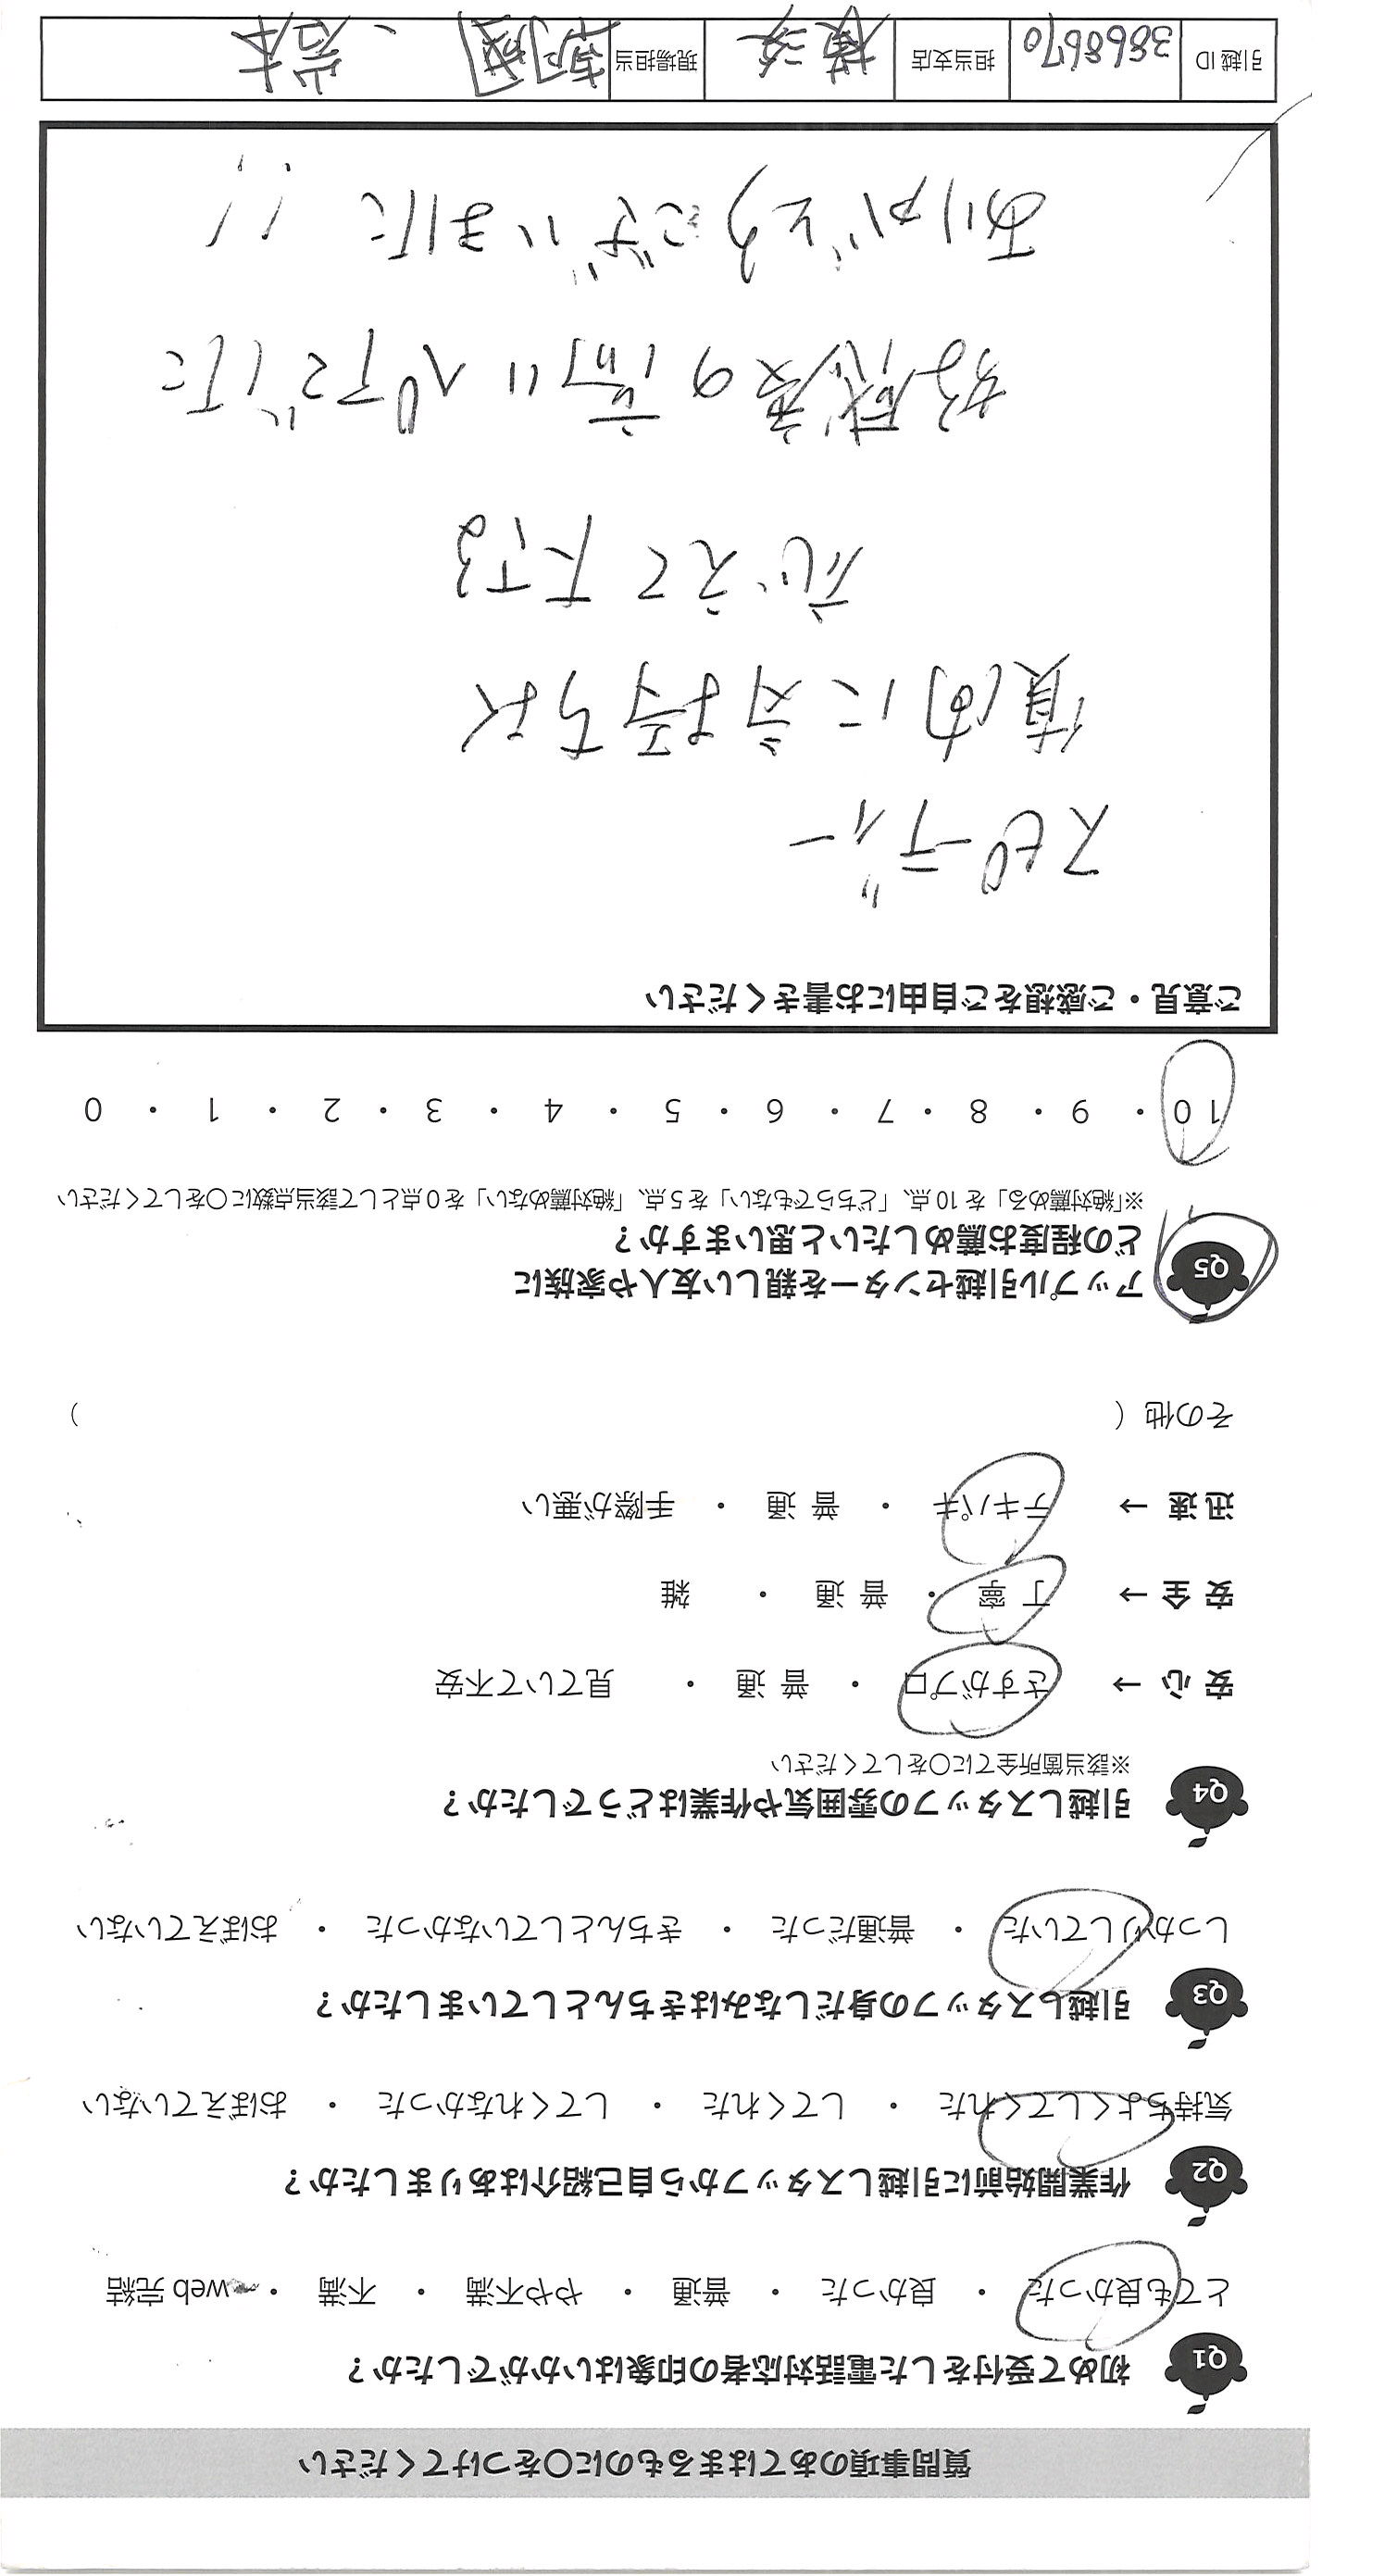 質問事項のあてはまるものに○をつけてください
Q1 初めて受付をした電話対応者の印象はいかがでしたか？
とても良かった ・ 良かった ・ 普通 ・ やや不満 ・ 不満 ・ web 完結
Q2 作業開始前に引越しスタッフから自己紹介はありましたか？
気持ちよくしてくれた ・ してくれた ・ してくれなかった ・ おぼえていない
Q3 引越しスタッフの身だしなみはきちんとしていましたか？
しっかりしていた ・ 普通だった ・ きちんとしていなかった ・ おぼえていない
Q4 引越しスタッフの雰囲気や作業はどうでしたか？
※該当箇所全てに○をしてください
安心 → さすがプロ ・ 普通 ・ 見ていて不安
安全 → 丁寧 ・ 普通 ・ 雑
迅速 → テキパキ ・ 普通 ・ 手際が悪い
その他 （ ）
Q5 アップル引越センターを親しい友人や家族に
どの程度お薦めしたいと思いますか？
※「絶対薦める」を 10 点、「どちらでもない」を 5 点、「絶対薦めない」を 0 点として該当点数に○をしてください
10 ・ 9 ・ 8 ・ 7 ・ 6 ・ 5 ・ 4 ・ 3 ・ 2 ・ 1 ・ 0
ご意見・ご感想をご自由にお書きください
スピーディー
値内に気持ちよく
応えて下さる
好感度の高い人でした
ありがとうございました！！
引越 ID 3868670 担当支店 横浜 現場担当 岩本